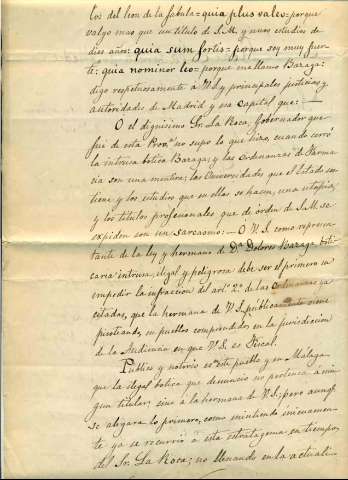 los del leon de la fabula = quia plus valeo = porque
valgo mas que un titulo de S. M. y unos estudios de
diez años: quia sum fortis = porque soy muy fuer-
te: quia nominor leo = porque me llamo Baraga:
digo respetuosamente a V. S. y principales justicias y
autoridades de Madrid y esa Capital que: —
O el dignisimo Sr. La Roca, Gobernador que
fué de esta Provª no supo lo que hizo, cuando cerró
la intrusa botica Baraga; y las Ordenanzas de Farma-
cia son una mentira; las Universidades que el Estado sos-
tiene y los estudios que en ellas se hacen, una utopia;
y los titulos profesionales que de orden de S. M. se
expiden son un sarcasmo: — O V. S. como represen-
tante de la ley y hermano de Dª Dolores Baraga boti-
caria intrusa, ilegal y peligrosa debe ser el primero en
impedir la infraccion del artº 2º de las Ordenanzas ya
citadas, que la hermana de V. S. publicamente viene
practicando, en pueblos comprendidos en la jurisdiccion
de la Audiencia en que V. S. es Fiscal.
Publico y notorio es en este pueblo y en Málaga
que la ilegal botica que denuncio no pertenece á nin-
gun titular; sino á la hermana de V. S.; pero aunqe
se alegara lo primero, como mintiendo inicuamen-
te ya se recurrió á esta estratagema en tiempos
del Sr. La Roca; no llenando en la actuali-